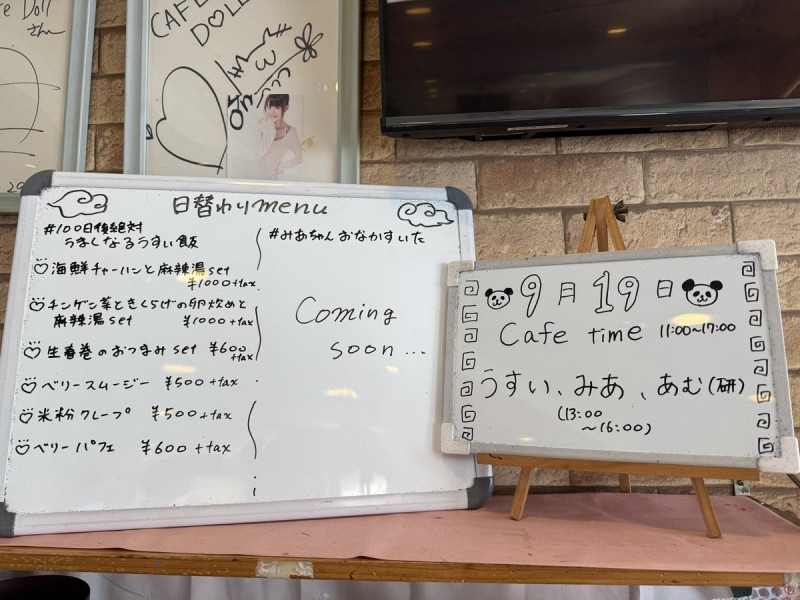 re Doll
さんへ
CAFE
DOLL
日替わりmenu
#100日後絶対
うまくなるうすい飯
海鮮チャーハンと麻辣湯set
¥1000+tax
チンゲン菜ときくらげの卵炒めと
麻辣湯set ¥1000+tax
生春巻のおつまみset ¥600
+tax
ベリースムージー ¥500+tax
米粉クレープ ¥500+tax
ベリーパフェ ¥600+tax
#みあちゃんおなかすいた
Coming
soon...
9月19日
Cafe time 11:00~17:00
うすい、みあ、あむ(研)
(13:00
~16:00)